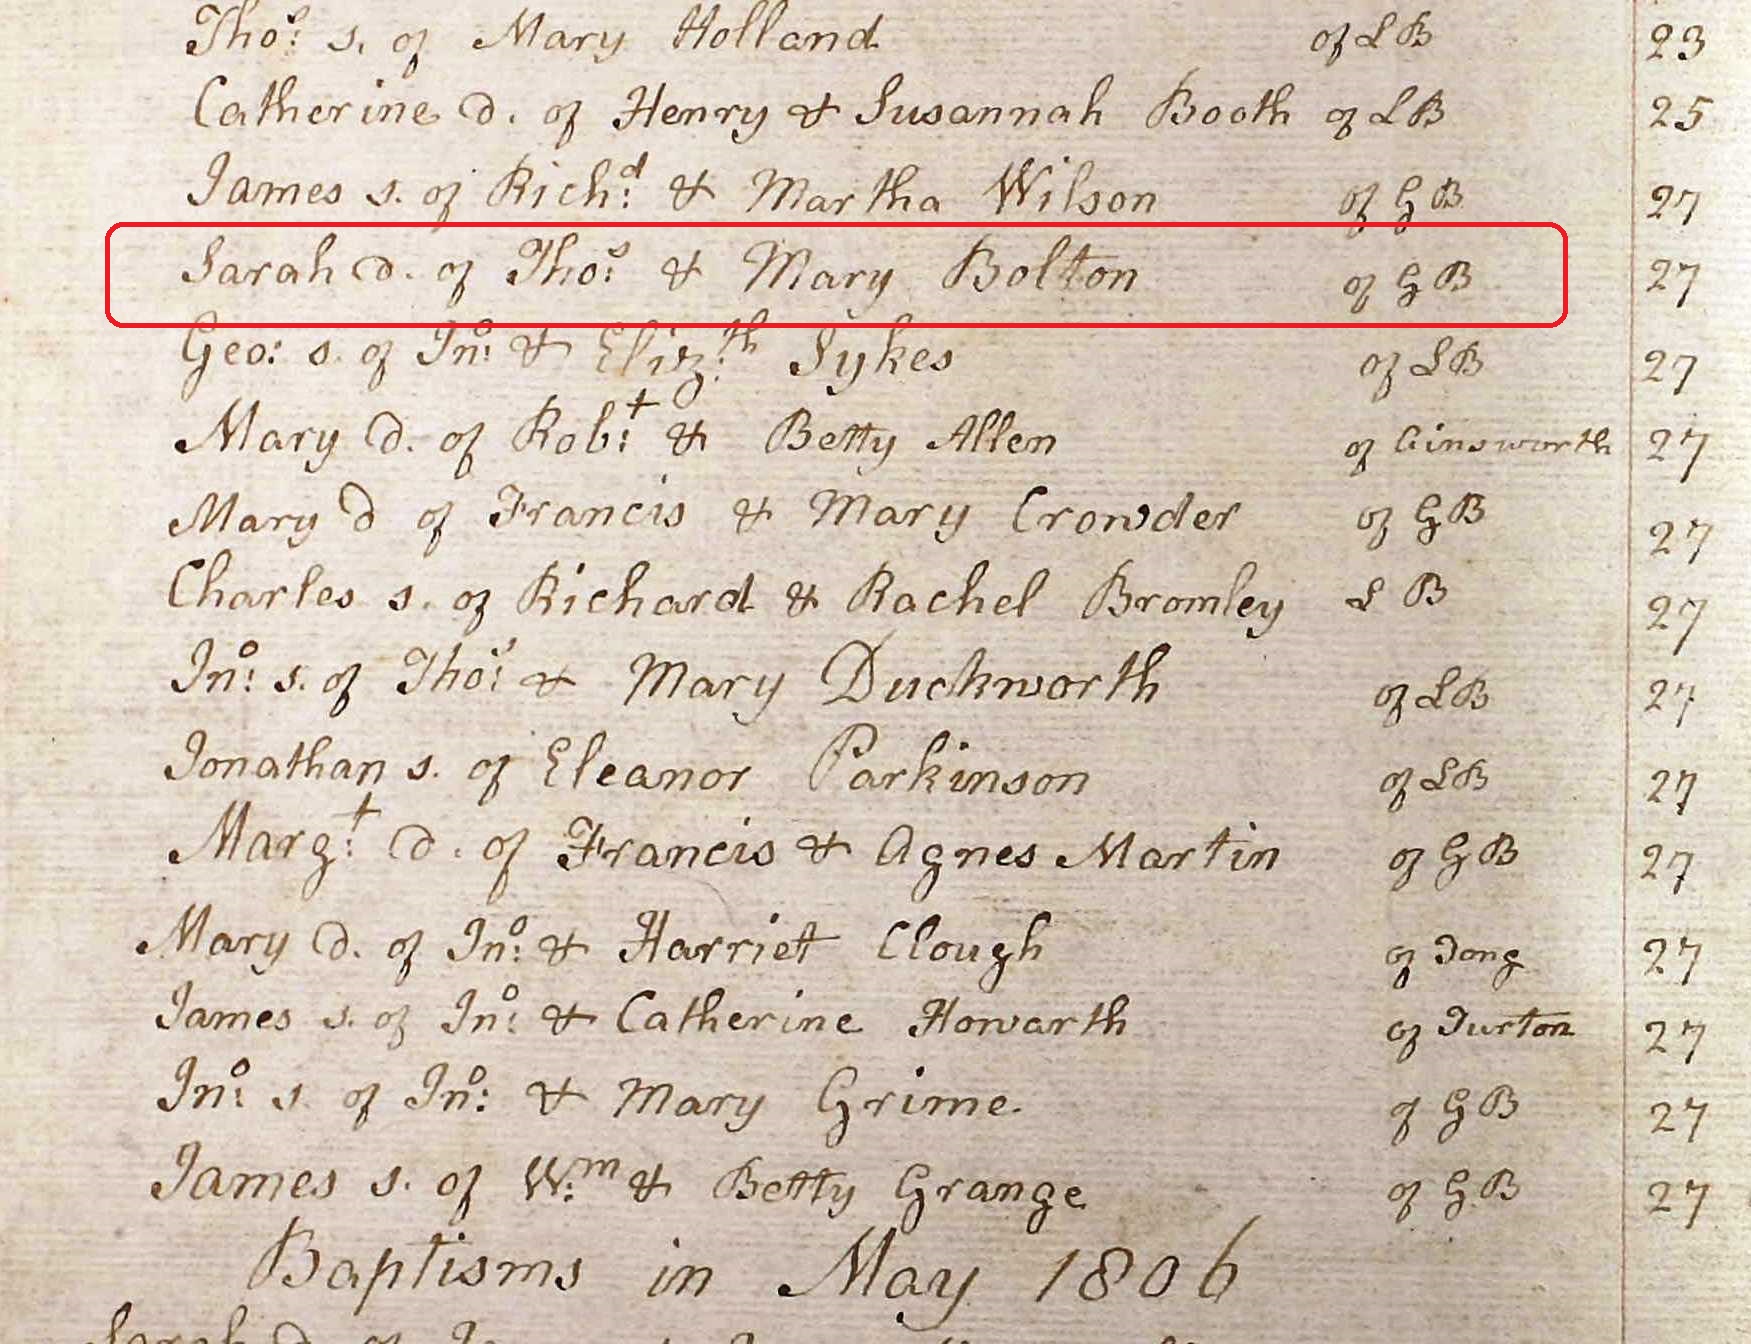 Thos: s. of Mary Holland of LB 23
Catherine d. of Henry & Susannah Booth of LB 25
James s. of Richd: & Martha Wilson of GB 27
Sarah d. of Thos: & Mary Bolton of GB 27
Geo: s. of Jno: & Elizth: Sykes of LB 27
Mary d. of Robt: & Betty Allen of Ainsworth 27
Mary d of Francis & Mary Crowder of GB 27
Charles s. of Richard & Rachel Bromley L B 27
Jno: s. of Thos: & Mary Duckworth of LB 27
Jonathan s. of Eleanor Parkinson of LB 27
Margt: d. of Francis & Agnes Martin of GB 27
Mary d. of Jno: & Harriet Clough of Tong 27
James s. of Jno: & Catherine Howarth of Turton 27
Jno: s. of Jno: & Mary Grime. of GB 27
James s. of Wm: & Betty Grange of GB 27
Baptisms in May 1806
Sarah d. of